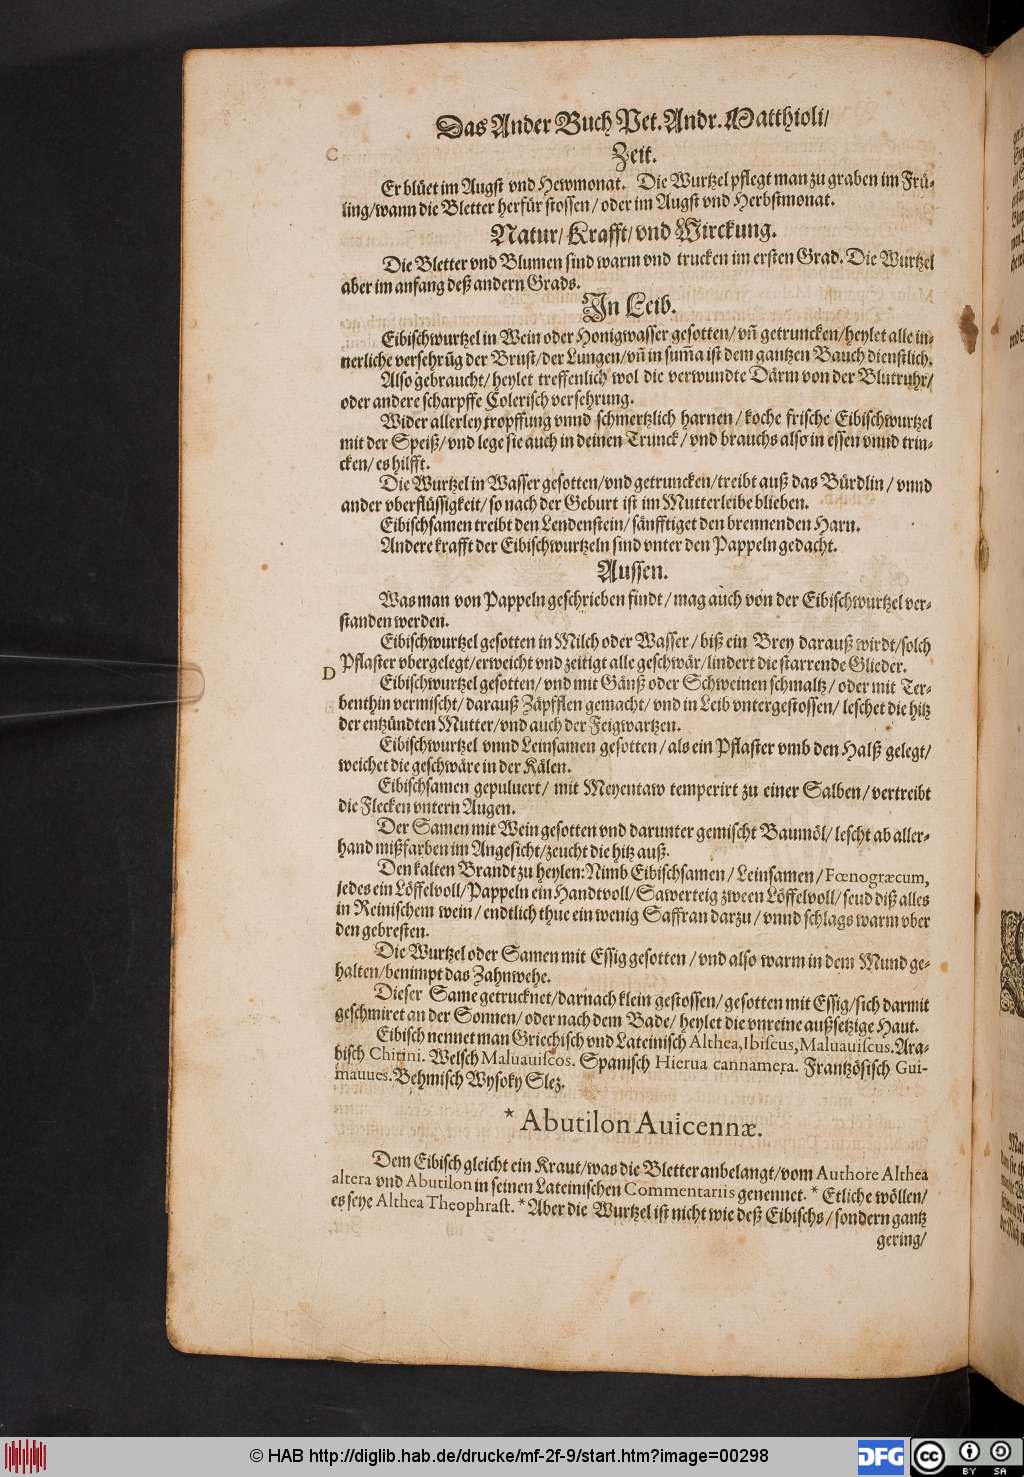 Das Ander Buch Pet. Andr. Matthioli/
C
Zeit.
Er blüet im Augst vnd Hewmonat. Die Wurtzel pflegt man zu graben im Frü-
ling/wann die Bletter herfür stossen/oder im Augst vnd Herbstmonat.
Natur/Krafft/vnd Wirckung.
Die Bletter vnd Blumen sind warm vnd trucken im ersten Grad. Die Wurtzel
aber im anfang deß andern Grads.
In Leib.
Eibischwurtzel in Wein oder Honigwasser gesotten/vñ getruncken/heylet alle in-
nerliche versehrũg der Brust/der Lungen/vñ in sum̃a ist dem gantzen Bauch dienstlich.
Also gebraucht/heylet treffenlich wol die verwundte Därm von der Blutruhr/
oder andere scharpffe Colerisch versehrung.
Wider allerley tropffung vnnd schmertzlich harnen/koche frische Eibischwurtzel
mit der Speiß/vnd lege sie auch in deinen Trunck/vnd brauchs also in essen vnnd trin-
cken/es hilfft.
Die Wurtzel in Wasser gesotten/vnd getruncken/treibt auß das Bürdlin/vnnd
ander vberflüssigkeit/so nach der Geburt ist im Mutterleibe blieben.
Eibischsamen treibt den Lendenstein/sänfftiget den brennenden Harn.
Andere krafft der Eibischwurtzeln sind vnter den Pappeln gedacht.
Aussen.
Was man von Pappeln geschrieben findt/mag auch von der Eibischwurtzel ver-
standen werden.
Eibischwurtzel gesotten in Milch oder Wasser/biß ein Brey darauß wirdt/solch
D
Pflaster vbergelegt/erweicht vnd zeitigt alle geschwär/lindert die starrende Glieder.
Eibischwurtzel gesotten/vnd mit Gänß oder Schweinen schmaltz/oder mit Ter-
benthin vermischt/darauß Zäpfflen gemacht/vnd in Leib vntergestossen/leschet die hitz
der entzündten Mutter/vnd auch der Feigwartzen.
Eibischwurtzel vnnd Leinsamen gesotten/als ein Pflaster vmb den Halß gelegt/
weichet die geschwäre in der Kälen.
Eibischsamen gepuluert/mit Meyentaw temperirt zu einer Salben/vertreibt
die Flecken vntern Augen.
Der Samen mit Wein gesotten vnd darunter gemischt Baumöl/lescht ab aller-
hand mißfarben im Angesicht/zeucht die hitz auß.
Den kalten Brandt zu heylen: Nimb Eibischsamen/Leinsamen/Fœnogræcum,
jedes ein Löffelvoll/Pappeln ein Handtvoll/Sawerteig zween Löffelvoll/seud diß alles
in Reinischem wein/endtlich thue ein wenig Saffran darzu/vnnd schlags warm vber
den gebresten.
Die Wurtzel oder Samen mit Essig gesotten/vnd also warm in dem Mund ge-
halten/benimpt das Zahnwehe.
Dieser Same getrucknet/darnach klein gestossen/gesotten mit Essig/sich darmit
geschmiret an der Sonnen/oder nach dem Bade/heylet die vnreine außsetzige Haut.
Eibisch nennet man Griechisch vnd Lateinisch Althea, Ibiscus, Maluauiscus. Ara-
bisch Chitini. Welsch Maluauiscos. Spanisch Hierua cannamera. Frantzösisch Gui-
mauues. Behmisch Wysoky Slez.
* Abutilon Auicennæ.
Dem Eibisch gleicht ein Kraut/was die Bletter anbelangt/vom Authore Althea
altera vnd Abutilon in seinen Lateinischen Commentariis genennet. * Etliche wöllen/
es seye Althea Theophrast. * Aber die Wurtzel ist nicht wie deß Eibischs/sondern gantz
gering/
© HAB http://diglib.hab.de/drucke/mf-2f-9/start.htm?image=00298
DFG
cc BY SA